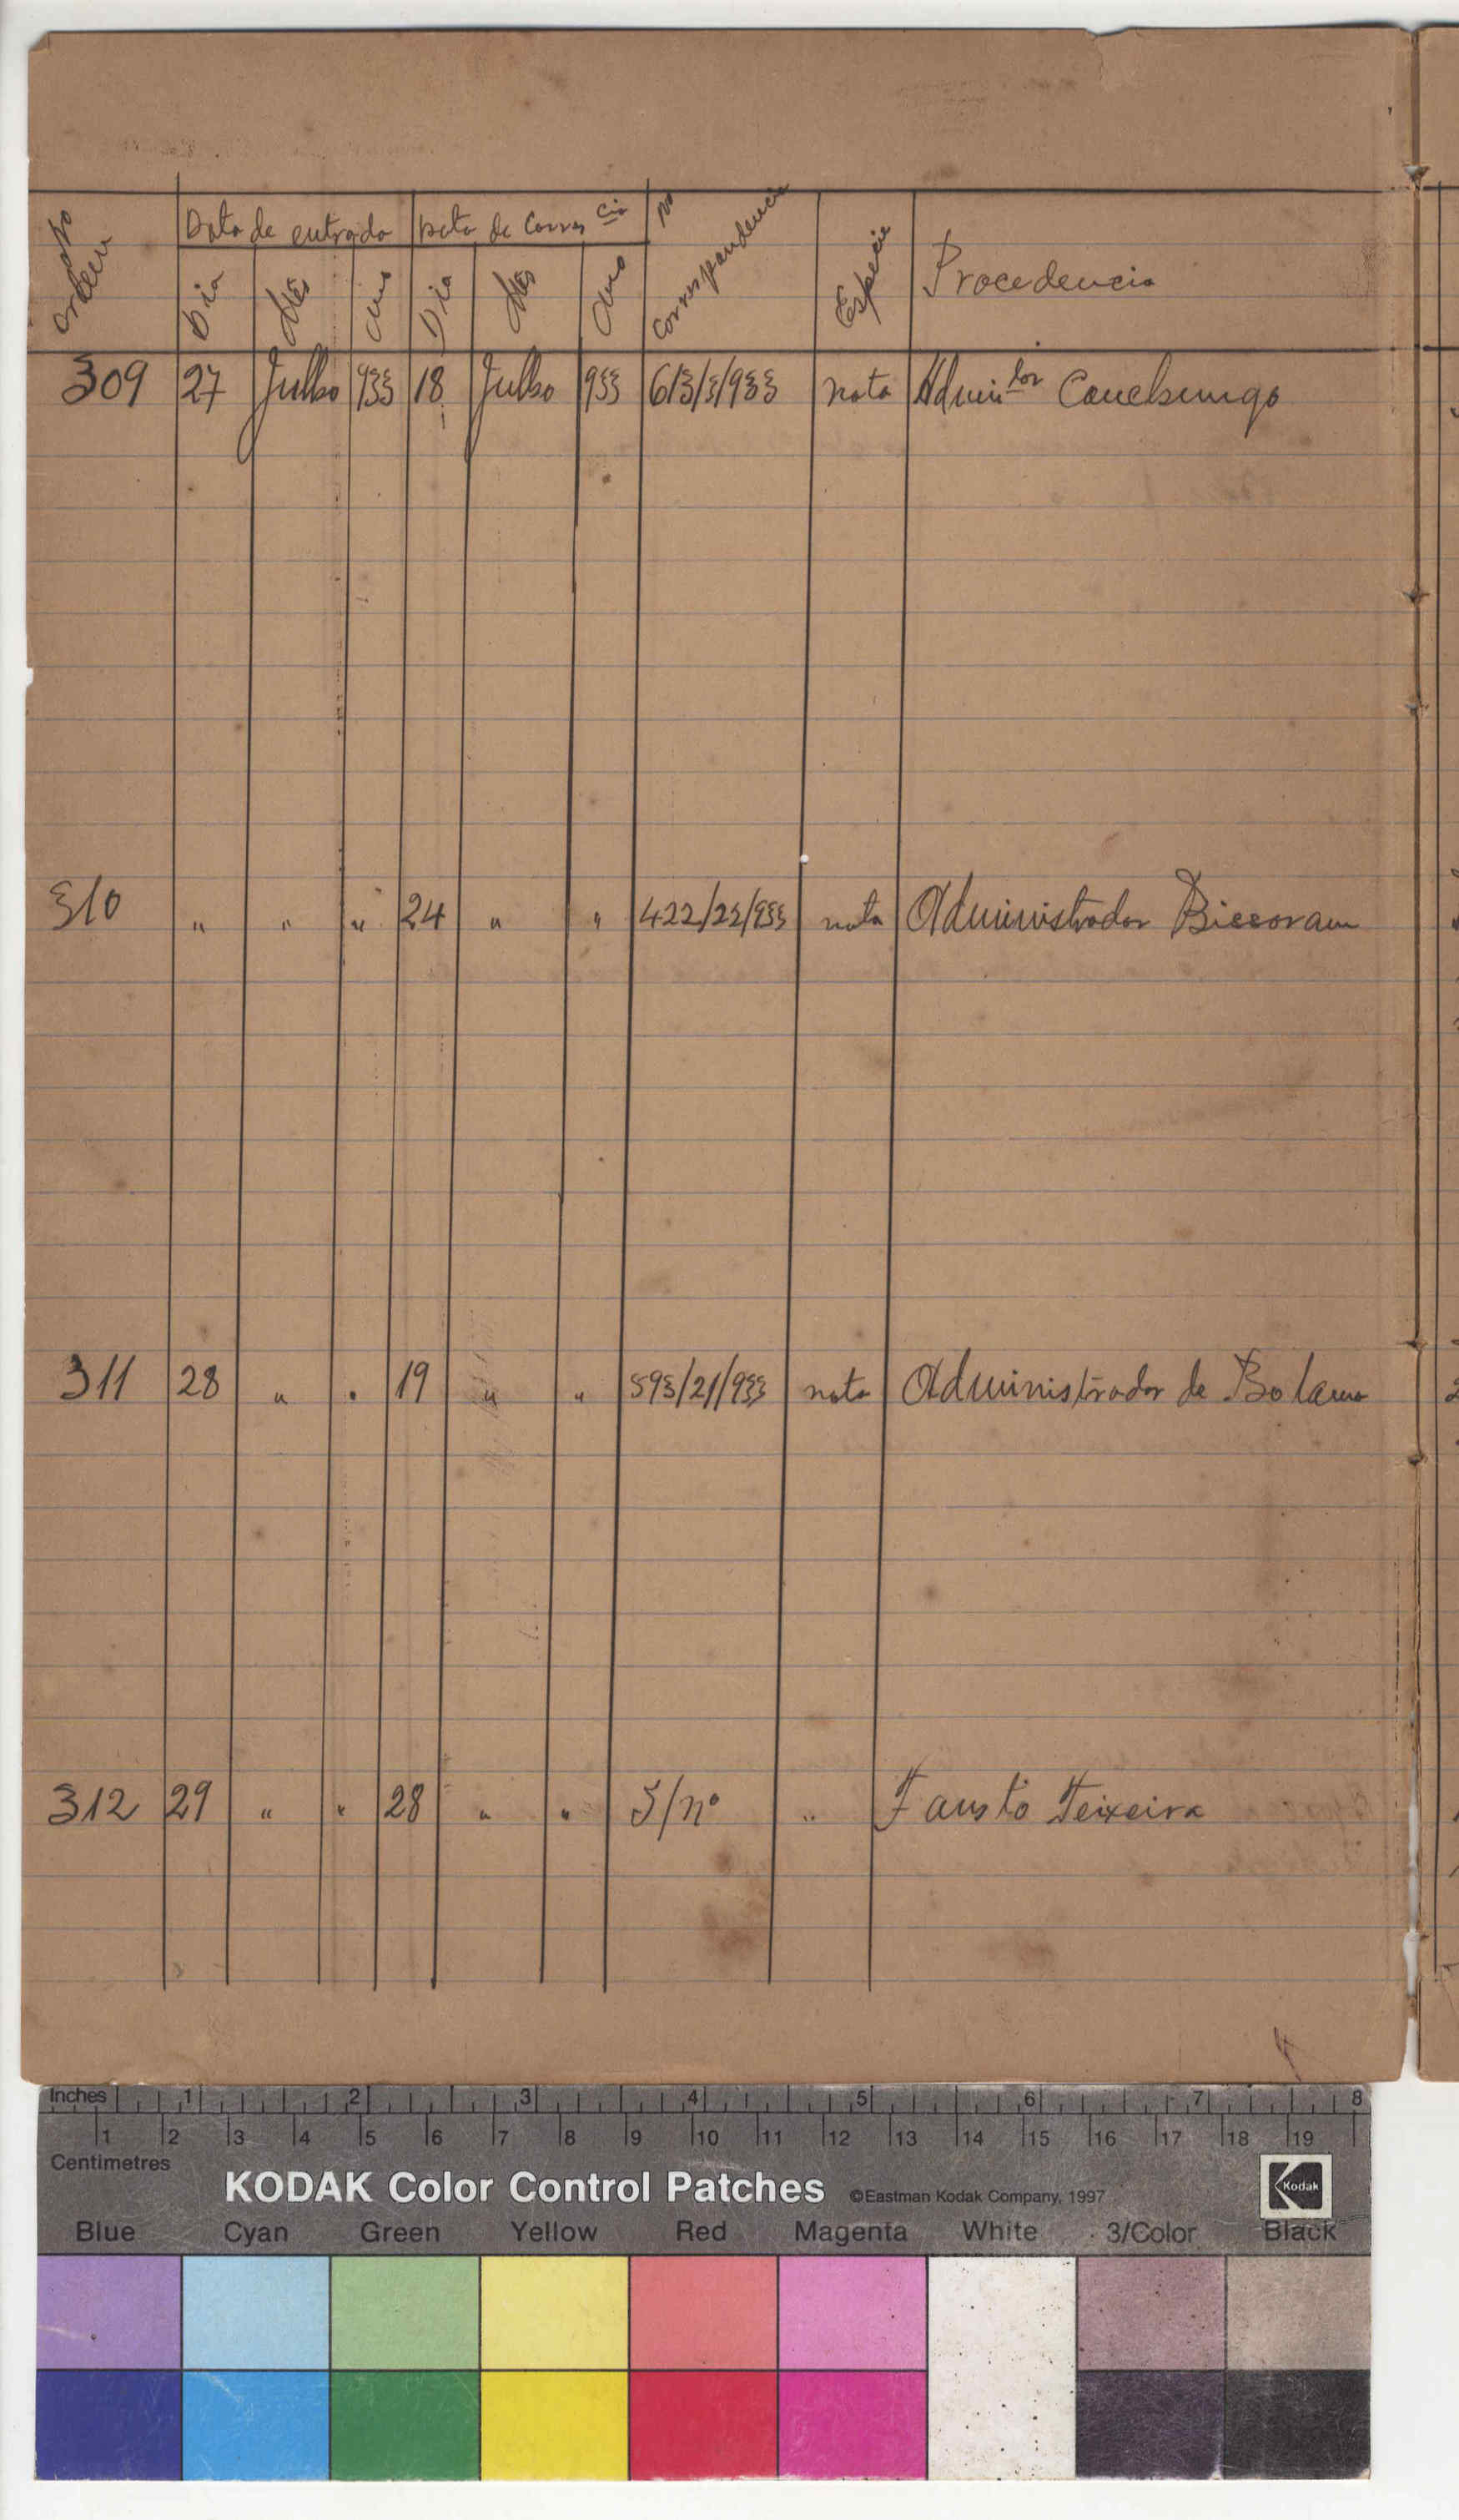 Nº Ordem Data de entrada Data de Corres cia Nº Correspondencia Especie Procedencia
Dia Mês Ano Dia Mês Ano
309 27 Julho 933 18 Julho 933 613/3/933 nota Admin dor Canchungo
310 " " " 24 " " 422/23/933 nota Administrador Bissoram
311 28 " " 19 " " 593/21/933 nota Administrador de Bolama
312 29 " " 28 " " S/nº " Fausto Teixeira
Inches 1 2 3 4 5 6 7 8
1 2 3 4 5 6 7 8 9 10 11 12 13 14 15 16 17 18 19
Centimetres
KODAK Color Control Patches ©Eastman Kodak Company, 1997 Kodak
Blue Cyan Green Yellow Red Magenta White 3/Color Black